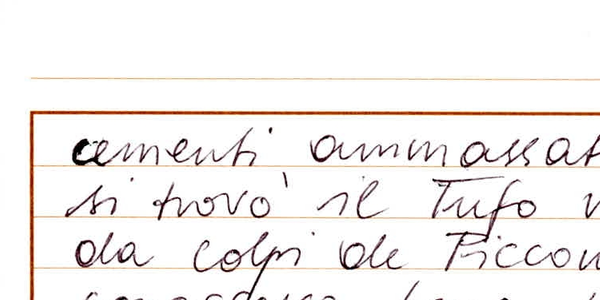 cementi ammassat
si trovò il Tufo
da colpi de Piccon